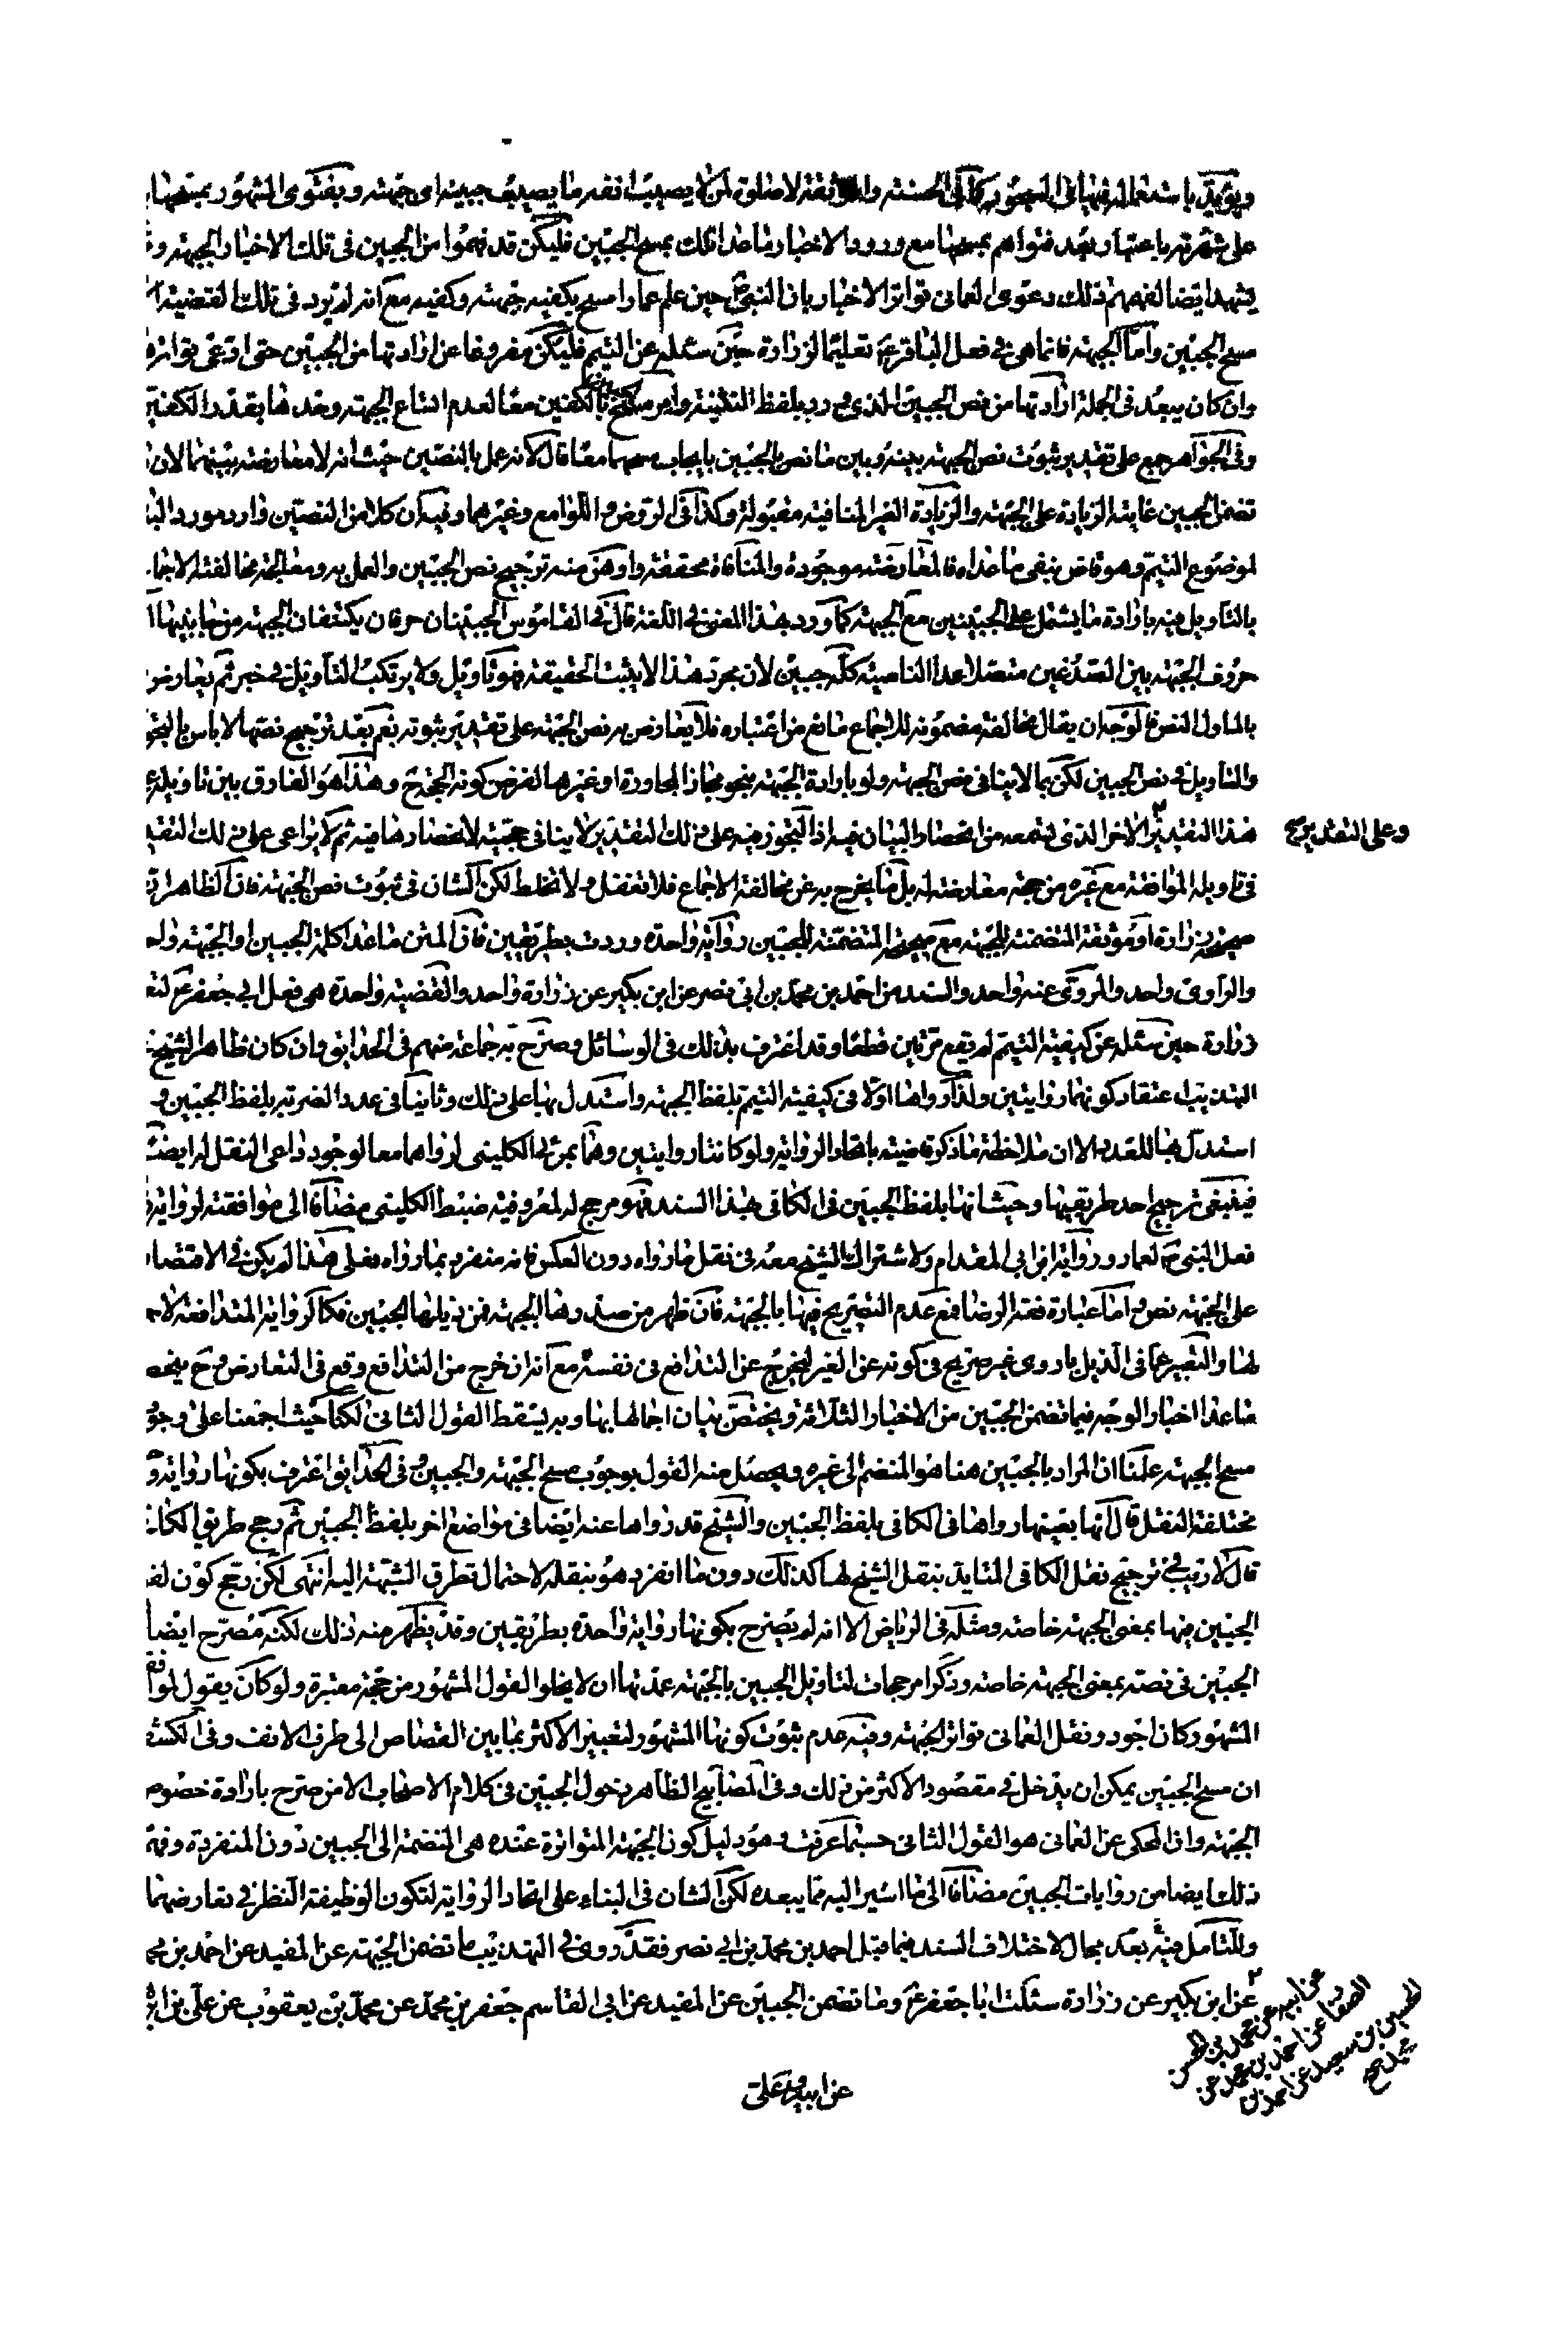 ويؤيد باستعماله فيها في السجود كما في الحسنة والموثقة لا صلوة لمن لا يصيب انفه ما يصيب جبينه اي جبهته وبفتوى المشهور بمسحها
على شهرته باعتبار وبعد فتواهم بمسحها مع ورود الاخبار ما عدا تلك بمسح الجبين فليكن قد فهموا من الجبين في تلك الاخبار الجبهة
يشهد ايضا لفهمهم ذلك دعوى العماني تواتر الاخبار بان النبي ص حين علم عمارا مسح بكفيه جبهته وكفيه مع انه لم يرد في تلك القضية
مسح الجبين واما الجبهة فانما هي في فعل الباقر ع تعليما لزرارة حين سئله عن التيمم فليكن مفروغا عن ارادتها من الجبين حتى ادعى تواتره
وان كان يبعد في الجملة ارادتها من نص الجبين الذي ورد بلفظ التثنية وامر بالكفين معا لعدم اتساع الجبهة وحدها بقدر الكفين
وفي الجواهر جمع على تقدير ثبوت نص الجبهة بينه وبين ما نص بالجبين بايجاب مسحهما معا قال لانه عمل بالنصين حيث انه لا معارضة بينهما لان
تضمن الجبين غايته الزيادة على الجبهة والزيادة الغير المنافية مقبولة وكذا في الروض واللوامع وغيرهما وفيه ان كلا من النصين وارد مورد البيان
لموضوع التيمم وهو قاض بنفي ما عداه فالمعارضة موجودة والمنافاة محققة واوهن منه ترجيح نص الجبين والعمل به ومعالجة مخالفته الاجماع
بالتاويل فيه بارادة ما يشتمل على الجبينين مع الجبهة كما ورد هذا المعنى في اللغة قال في القاموس الجبينان حرفان يكتنفان الجبهة من جانبيها
حروف الجبهة بين الصدغين متصلا عدا الناصية كله جبين لان مجرد هذا لا يثبت الحقيقة فهو تاويل ولا يرتكب التاويل في خبر ثم يعارض
بالماول النص فالوجه ان يقال مخالفة مضمونه للاجماع مانع من اعتباره فلا يعارض به نص الجبهة على تقدير ثبوته نعم بعد ترجيح نصها لا باس بالتجوز
والتاويل في نص الجبين لكن بما لا ينافي نص الجبهة ولو بارادة الجبهة بنحو مجاز المجاورة او غيرها لفرض كونه الحجة ح وهذا هو الفارق بين تاويله
هذا التقدير الاخر الذي نمنعه من انحصار البيان فيه اذ التجوز فيه على ذلك التقدير لا ينافي حجيته لانحصارها فيه ثم لا يراعى على ذلك التقدير
وعلى التقدير صح
في تاويله الموافقة مع غيره من جهة معارضته له بل ما يخرج به عن مخالفة الاجماع فلا تغفل ولا تخلط لكن الشان في ثبوت نص الجبهة فان الظاهر
صحيحة زرارة او موثقة المتضمنة للجبهة مع صحيحته المتضمنة للجبين رواية واحدة وردت بطريقين فان المتن ما عدا كلمة الجبين او الجبهة واحد
والراوي واحد والمروي عنه واحد والسند من احمد بن محمد بن ابي نصر عن ابن بكير عن زرارة واحد والقضية واحدة هي فعل ابي جعفر ع
زرارة حين سئله عن كيفية التيمم لم يقع مرتين قطعا وقد اعترف بذلك في الوسائل وصرح به جماعة منهم في الحدائق وان كان ظاهر الشيخ
التهذيب اعتقاد كونهما روايتين ولذا رواها اولا في كيفية التيمم بلفظ الجبهة واستدل بها على ذلك وثانيا في عدد الضربة بلفظ الجبين
استدل بها للعدد الا ان ملاحظة ما ذكر قاضية باتحاد الرواية ولو كانتا روايتين وهما بمرئى الكليني لرواهما معا لوجود داعي النقل له ايضا
فينبغي ترجيح احد طريقيها وحيث انها بلفظ الجبين في الكافي بهذا السند فهو مرجح له لمعروفية ضبط الكليني مضافا الى موافقته لرواية
فعل النبي ص لعمار ورواية ابن ابي المقدام ولاشتراك الشيخ معه في نقل ما رواه دون العكس فانه منفرد بما رواه فعلى هذا لم يكن في الاقتصار
على الجبهة نص واما عبارة فقه الرضا فمع عدم التصريح فيها بالجبهة فان ظهر من صدرها الجبهة فمن ذيلها الجبين فكالرواية المتدافعة
لها والتعبير عما في الذيل بـ روي غير صريح في كونه عن الغير ليخرج عن التدافع في نفسه مع انه ان خرج من التدافع وقع في التعارض وح ينحصر
ما عدا اخبار الوجه فيما تضمن الجبين من الاخبار الثلاثة ويختص بيان اجمالها بها وبه يسقط القول الثاني لكنا حيث اجمعنا على وجوب
مسح الجبهة علمنا ان المراد بالجبين هنا هو المنضم الى غيره ويحصل منه القول بوجوب مسح الجبهة والجبين وفي الحدائق اعترف بكونها رواية
مختلفة النقل قال انها بعينها رواها في الكافي بلفظ الجبين والشيخ قد رواها عنه ايضا في مواضع اخر بلفظ الجبين ثم رجح طريق الكافي
قال لا ريب في ترجيح نقل الكافي المتايد بنقل الشيخ لها كذلك دون ما انفرد هو بنقله لاحتمال تطرق الشبهة اليه انتهى لكن رجح كون لفظ
الجبين فيها بمعنى الجبهة خاصة ومثله في الرياض الا انه لم يصرح بكونها رواية واحدة بطريقين وقد يظهر منه ذلك لكنه مصرح ايضا
الجبين في نصه بمعنى الجبهة خاصة وذكرا مرجحات لتاويل الجبين بالجبهة عمدتها ان لا يخلو القول المشهور من حجة معتبرة ولو كان يقول لموافقة
المشهور كان اجود ونقل العماني تواتر الجبهة وفيه عدم ثبوت كونها المشهور لتعبير الاكثر بما بين القصاص الى طرف الانف وفي الكشف
ان مسح الجبين يمكن ان يدخل في مقصود الاكثر من ذلك وفي المصابيح الظاهر دخول الجبين في كلام الاصحاب الا من صرح بارادة خصوص
الجبهة وان المحكي عن العماني هو القول الثاني حسبما عرفت وهو دليل كون الجبهة المتواترة عنده هي المنضمة الى الجبين دون المنفردة وفهم
ذلك ايضا من روايات الجبين مضافا الى ما اشير اليه مما يبعده لكن الشان في البناء على اتحاد الرواية لتكون الوظيفة النظر في تعارضهما
وللتامل فيه بعد مجال لاختلاف السند فيما قبل احمد بن محمد بن ابي نصر فقد روى في التهذيب ما تضمن الجبهة عن المفيد عن احمد بن محمد
عن ابن بكير عن زرارة سئلت ابا جعفر ع وما تضمن الجبين عن المفيد عن ابي القاسم جعفر بن محمد عن محمد بن يعقوب عن علي بن ابراهيم
عن ابيه عن محمد بن الحسن
الصفار عن احمد بن محمد عن
الحسين بن سعيد عن احمد بن
محمد صح
عن ابيه وعلي